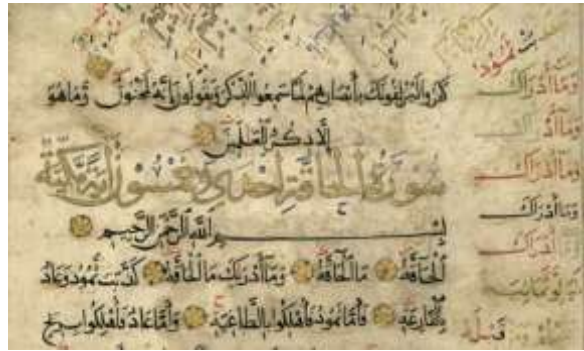 كفروا ليزلقونك بأبصارهم لما سمعوا الذكر ويقولون إنه لمجنون وما هو
إلا ذكر للعلمين
سورة الحاقة احدى وخمسون آية مكية
بسم الله الرحمن الرحيم
ٱلحاقة ما ٱلحاقة وما أدرىك ما ٱلحاقة كذبت ثمود وعاد
بالقارعة فأما ثمود فأهلكوا بالطاغية وأما عاد فأهلكوا بريح
بت ثمود
وما أدراك
وما أد
وما أدراك
وما أدراك
أدراك
قبله